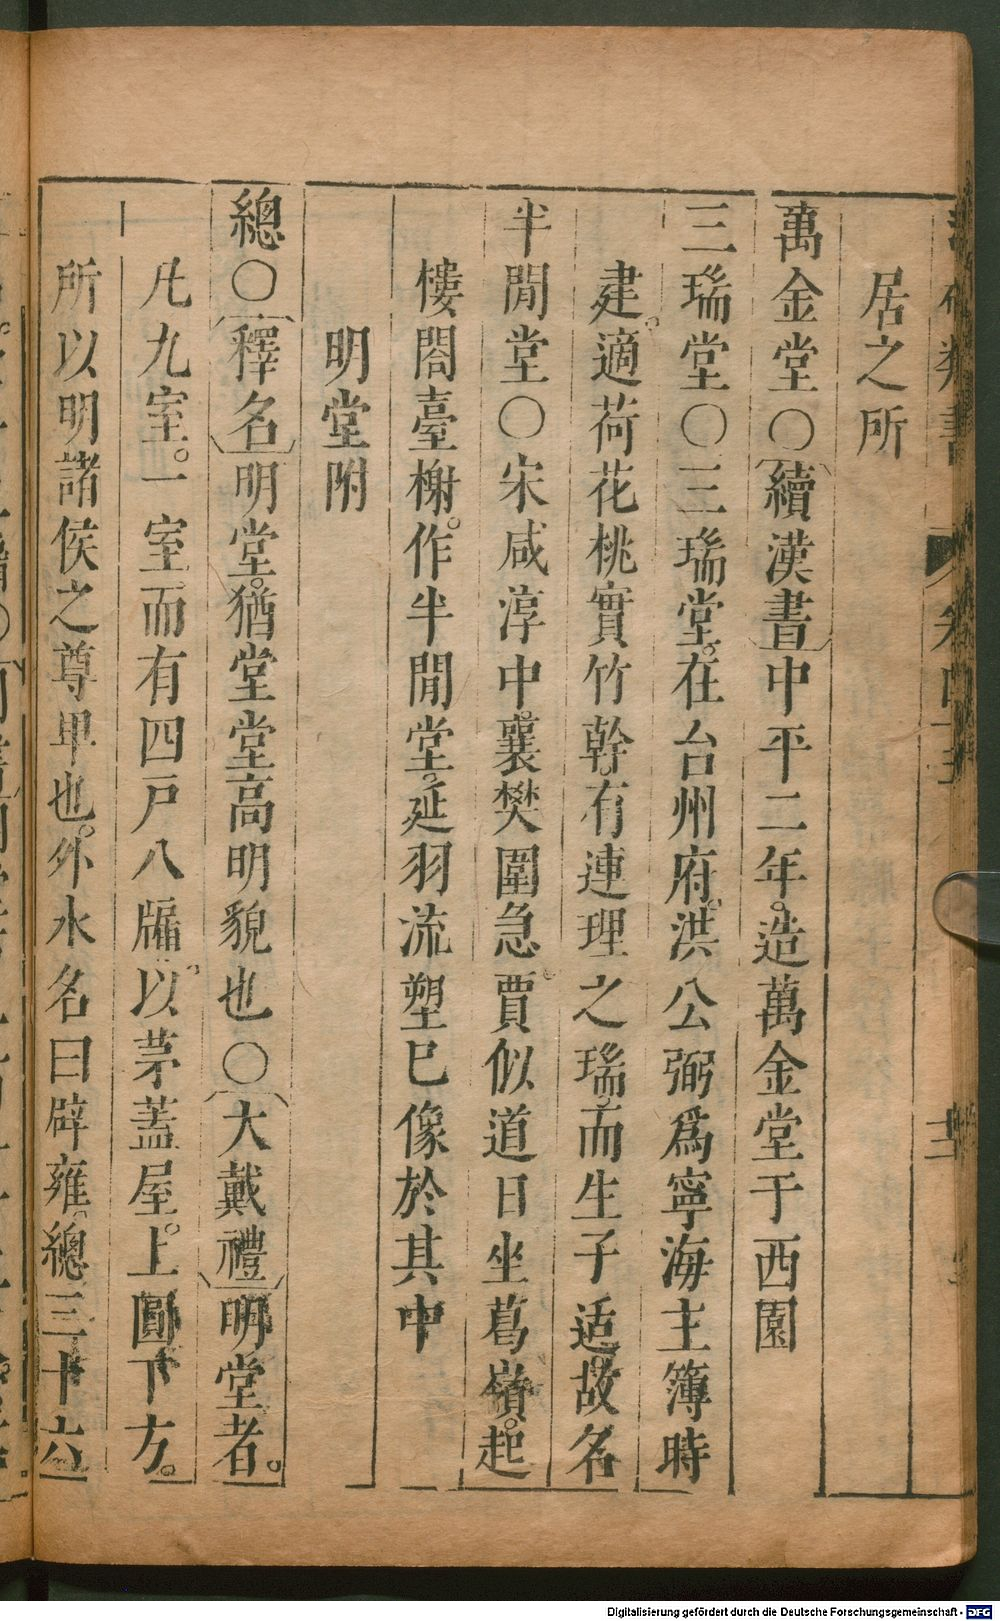 居之所
萬金堂○續漢書中平二年。造萬金堂于西園
三瑞堂○三瑞堂。在台州府。洪公弼爲寧海主簿時
建。適荷花桃實竹幹。有連理之瑞。而生子适。故名
半閒堂○宋咸淳中。襄樊圍急。賈似道日坐葛嶺。起
樓閣臺榭。作半閒堂。延羽流塑巳像於其中
明堂附
總○釋名明堂。猶堂堂高明貌也○大戴禮明堂者。
凡九室。一室而有四戸八牖。以茅蓋屋。上圓下方。
所以明諸侯之尊卑也。外水名曰辟雍。總三十六
Digitalisierung gefördert durch die Deutsche Forschungsgemeinschaft - DFG